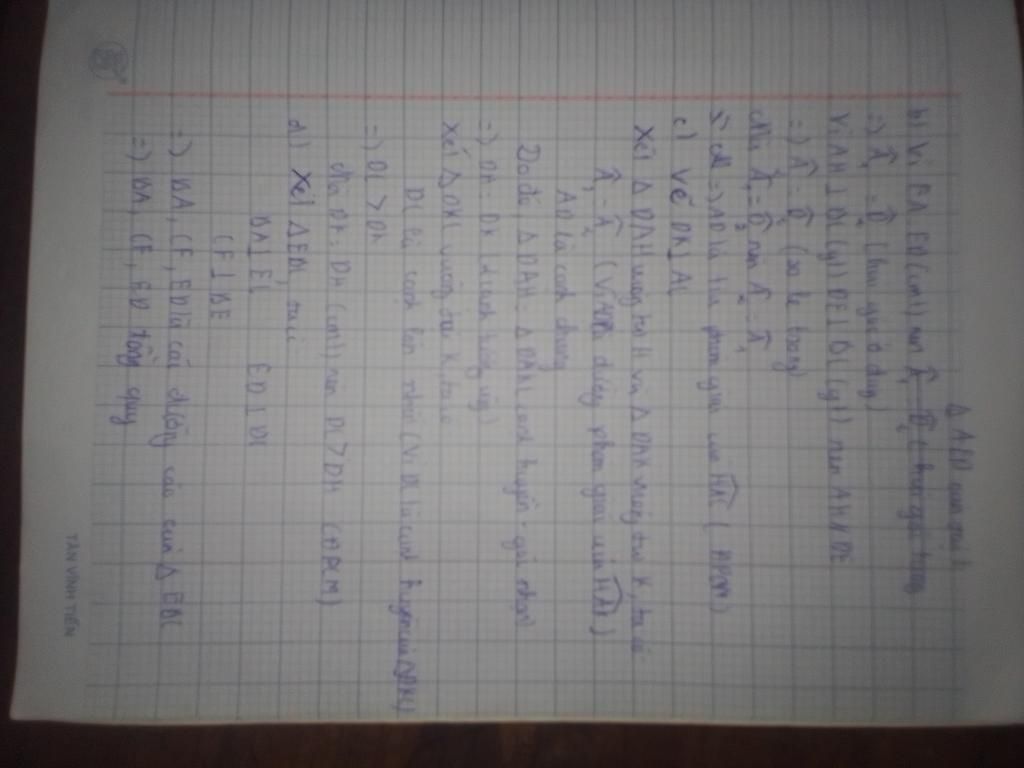 Δ AED cân tại E
b) Vì EA = ED (cmt) nên Â₁ = D̂
=) Â₁ = D̂ (hai góc ở đáy)
Vì AH ⊥ BC (gt) DE ⊥ BC (gt) nên AH // DE
=) Â = D̂ (so le trong)
Mà Â₁ = D̂ nên Â = Â₁
=) AD là tia phân giác của HAC (ĐPCM)
c) Vẽ DK ⊥ AC
Xét Δ DAH vuông tại H và Δ DAK vuông tại K, ta có
Â₁ = Â₂ (Vì AD là đường phân giác của HAC)
AD là cạnh chung
Do đó, Δ DAH = Δ DAK (cạnh huyền - góc nhọn)
=) DH = DK (2 cạnh tương ứng)
Xét Δ DKC vuông tại K, ta có
DC là cạnh lớn nhất (Vì DC là cạnh huyền của Δ DKC)
=) DC > DK
Mà DK = DH (cmt) nên DC > DH (ĐPCM)
d) Xét Δ EBC, ta có
BA ⊥ EC ED ⊥ BC
CF ⊥ BE
=) BA, CF, ED là các đường cao của Δ EBC
=) BA, CF, ED đồng quy
TÂN VĨNH TIẾN